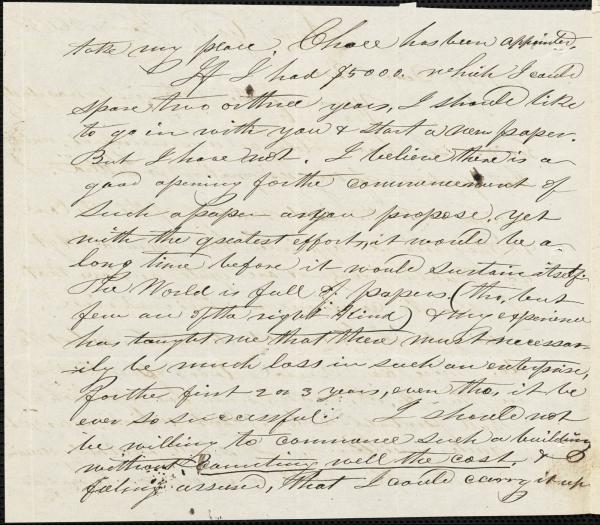 take my place. Chace has been appointed.
If I had $5000. which I could
spare two or three years, I should like
to go in with you & start a new paper.
But I have not. I believe there is a
good opening for the commencement of
such a paper as you propose. yet
with the greatest efforts, it would be a
long time before it would sustain itself.
The World is full of papers (tho, but
few are of the right kind) & my experience
has taught me that there must necessar-
ily be much loss in such an enterprise,
for the first 2 or 3 years, even tho, it be
ever so successful. I should not
be willing to commence such a building
without counting well the cost, &
feeling assured, that I could carry it up